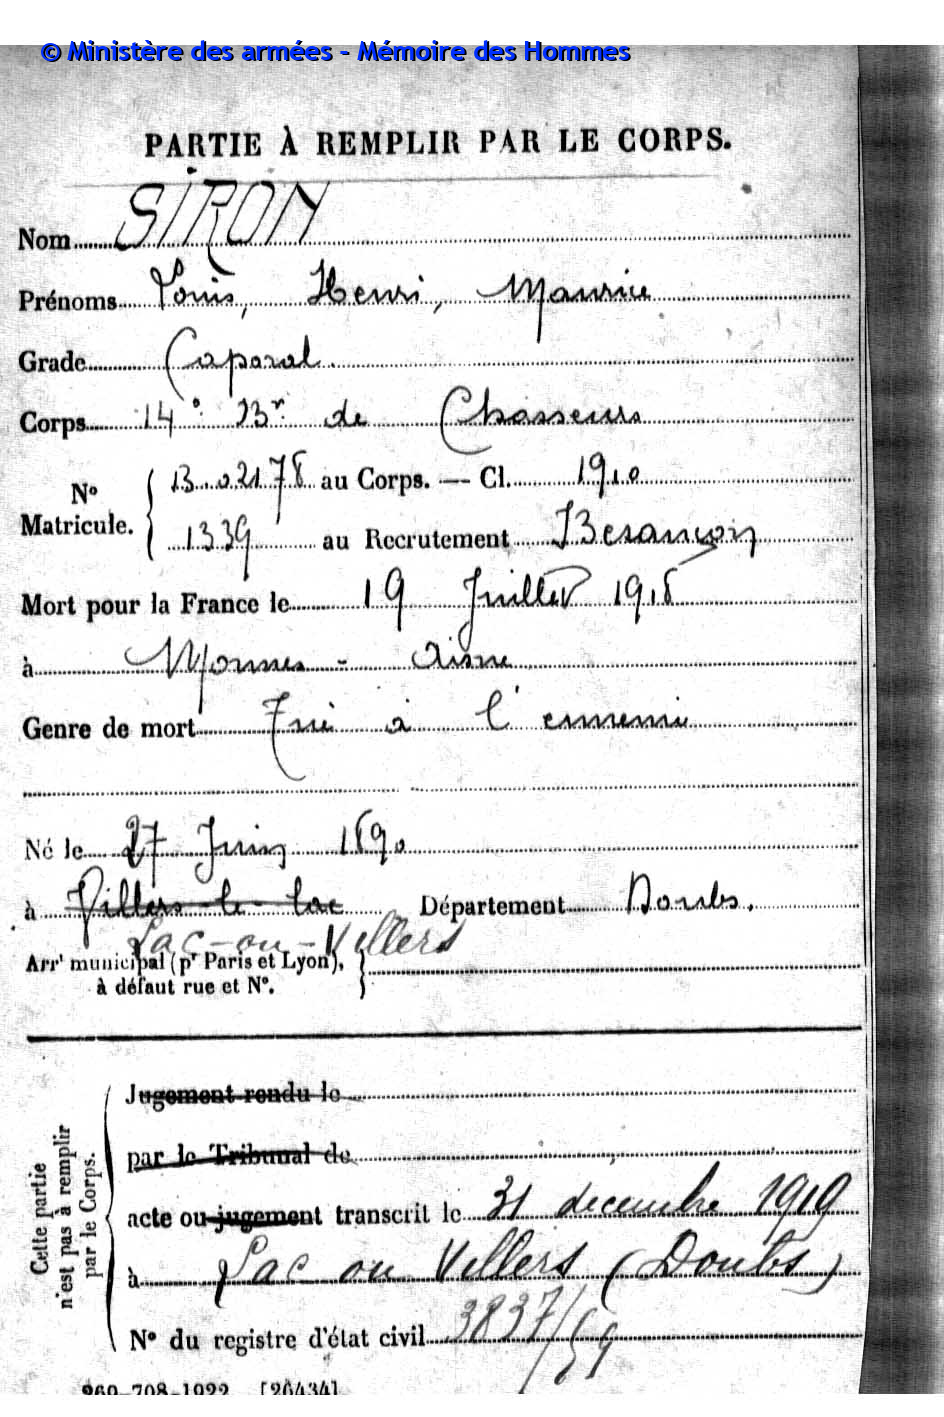 © Ministère des armées - Mémoire des Hommes
PARTIE À REMPLIR PAR LE CORPS.
Nom SIRON
Prénoms Louis, Henri, Maurice
Grade Caporal.
Corps 14e Bn de Chasseurs
No Matricule. 13.02178 au Corps. — Cl. 1910
1339 au Recrutement Besançon
Mort pour la France le 19 Juillet 1918
à Monnes - Aisne
Genre de mort Tué à l'ennemi
Né le 27 Juin 1890
à Villers-le-lac Département Doubs.
Lac-ou-Villers
Arrt municipal (pr Paris et Lyon),
à défaut rue et No.
Cette partie
n'est pas à remplir
par le Corps.
Jugement rendu le
par le Tribunal de
acte ou jugement transcrit le 31 decembre 1919
à Lac ou Villers (Doubs)
No du registre d'état civil 3837/59
960-708-1922. [26434]